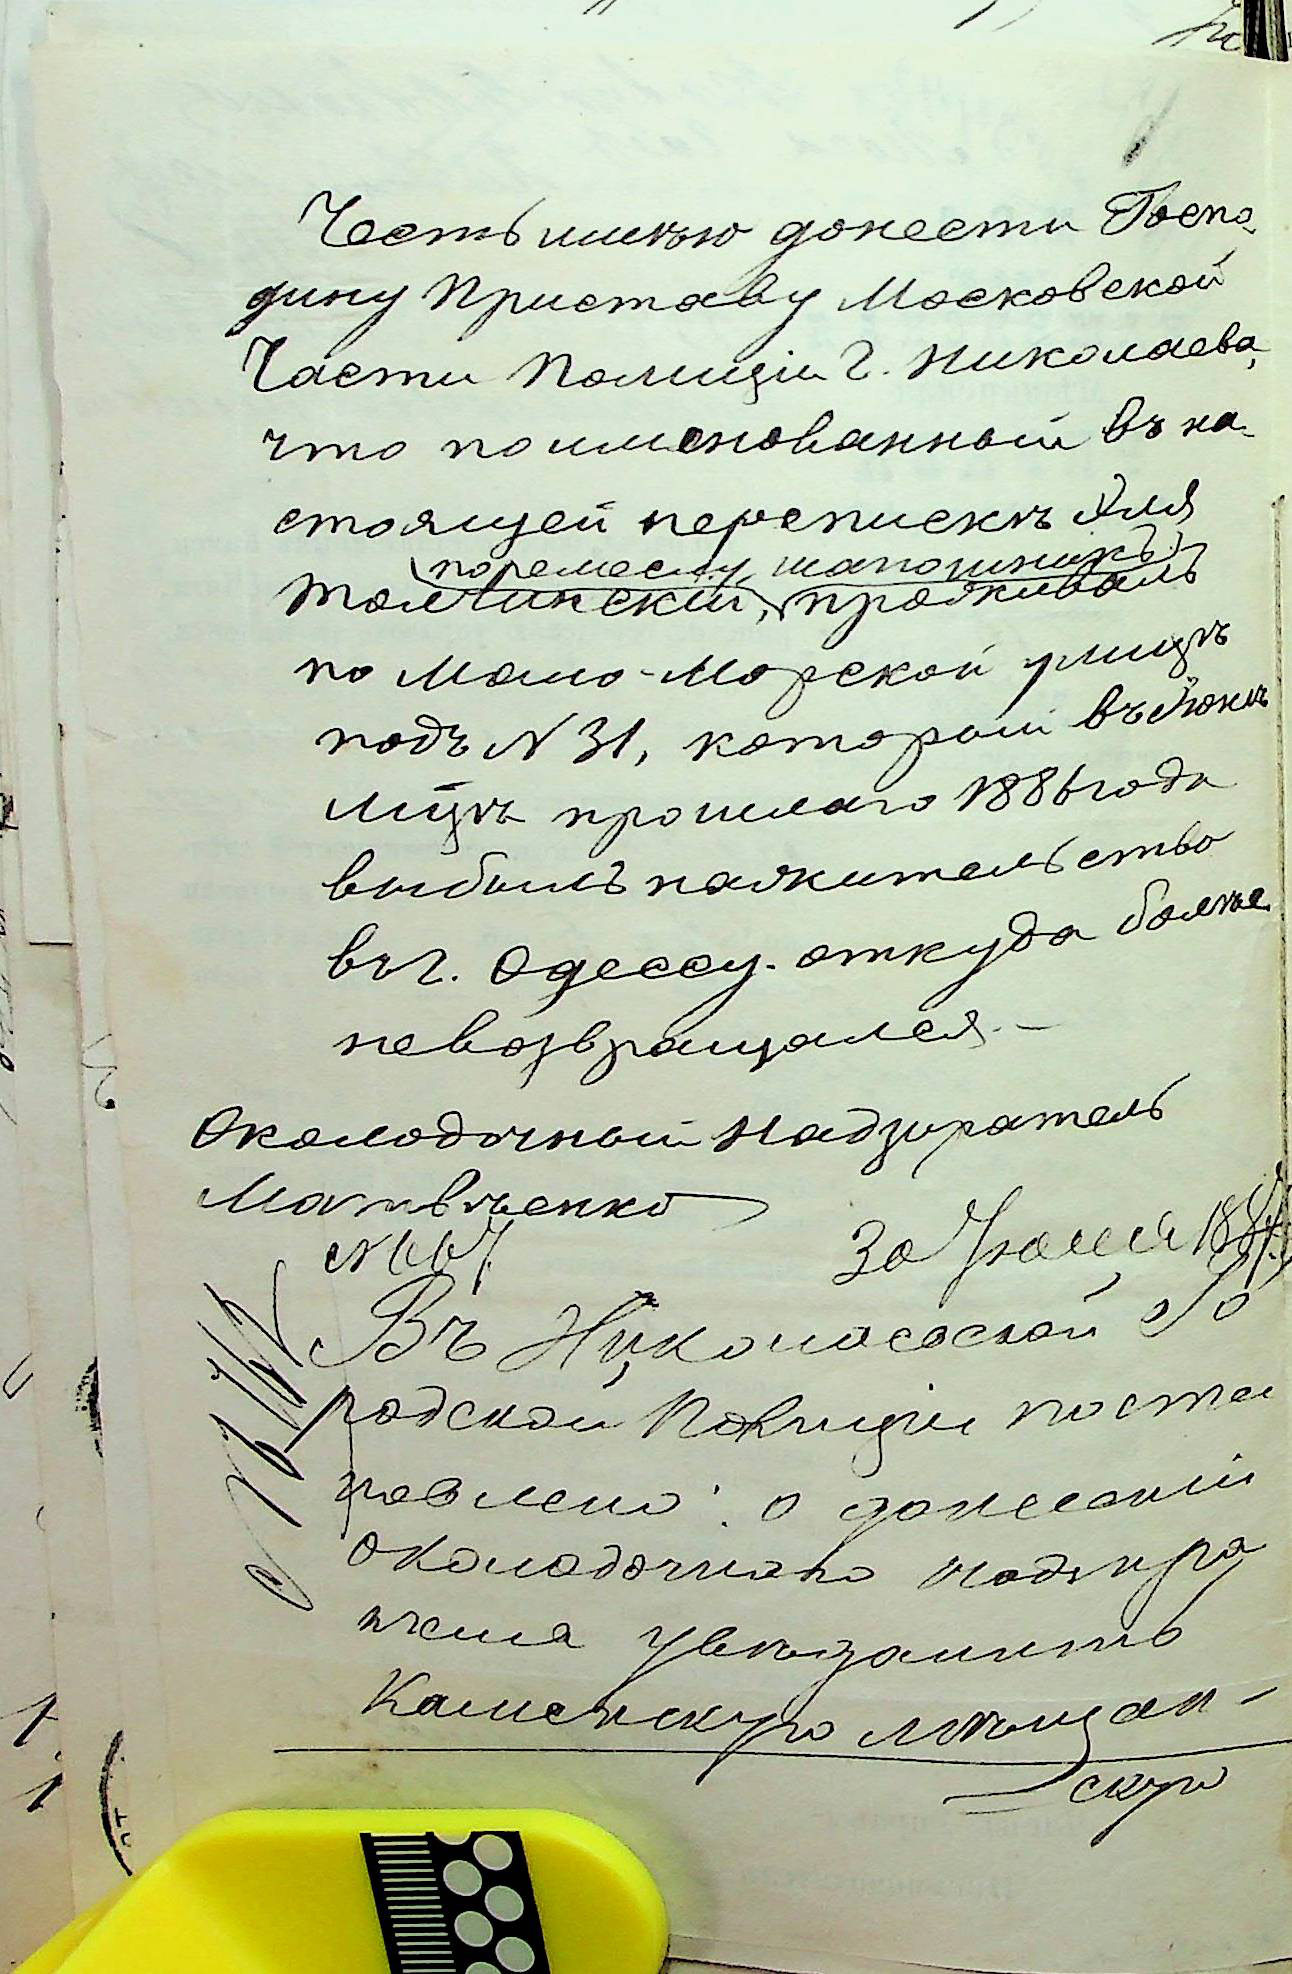 Честь имѣю донести Госпо-
дину Приставу Московской
Части Полиціи г. Николаева,
что поименованный въ на-
стоящей перепискѣ Эля
по ремеслу шапошникъ
Толчинскій, проживалъ
по Мало-Морской улицѣ
подъ N 31, который въ Іюнѣ
м-цѣ прошлаго 1886 года
выбылъ на жительство
въ г. Одессу. откуда болѣе
невозвращался. —
Околодочный Надзиратель
Матвѣенко
30 Іюля 188
Въ Николаевской Го
родской Полиціи поста
новлено: о донесеніи
околодочнаго надзира
теля увѣдомить
Каменскую мѣщан-
скую